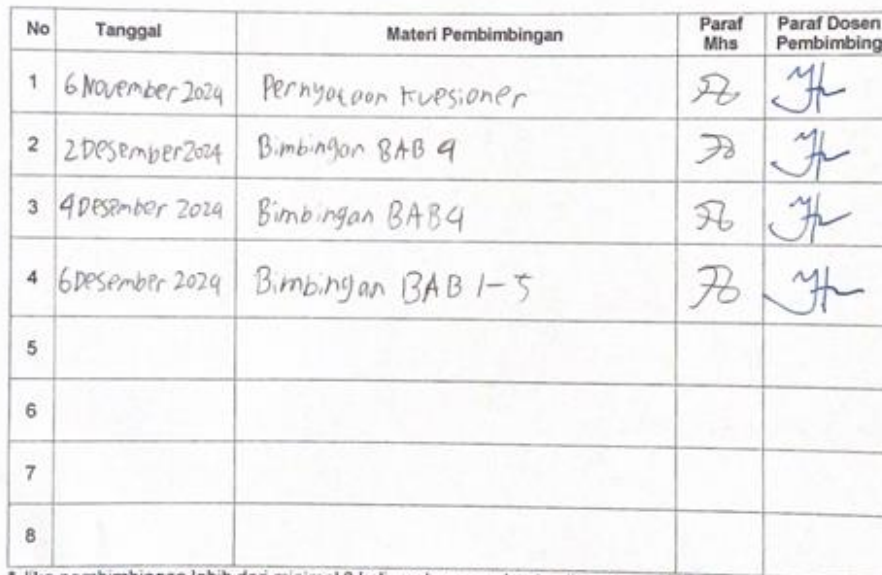 No Tanggal Materi Pembimbingan Paraf Mhs Paraf Dosen Pembimbing
1 6 November 2024 Pernyataan Kuesioner
2 2 Desember 2024 Bimbingan BAB 4
3 4 Desember 2024 Bimbingan BAB 4
4 6 Desember 2024 Bimbingan BAB 1-5
5
6
7
8